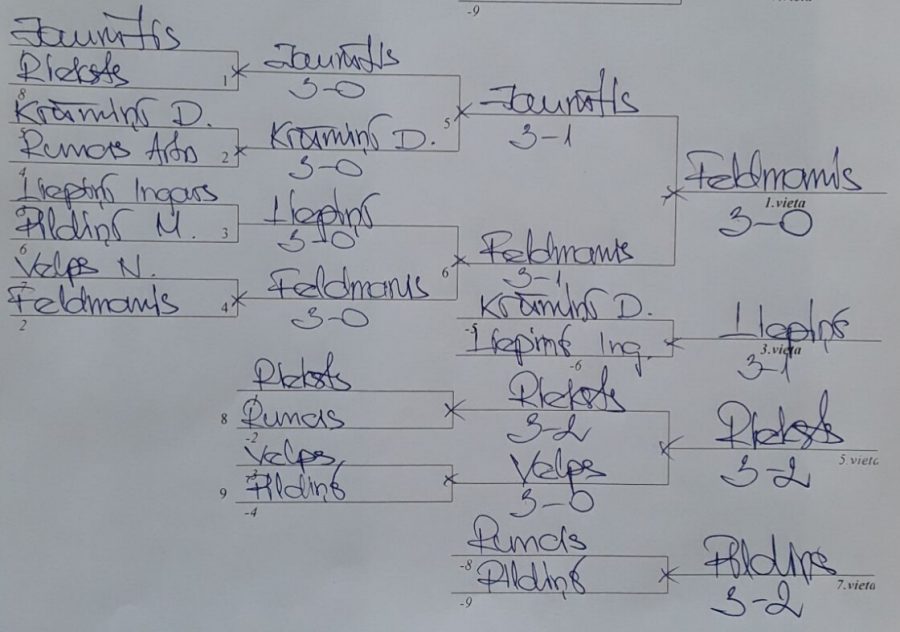 -9
Jaunītis
Rieksts
1
Jaunītis
3-0
8
Krūmiņš D.
Runcis
2
Krūmiņš D.
3-0
5
Jaunītis
3-1
4
Liepiņš Ingars
Pildiņš M.
3
Liepiņš
3-0
6
Velps N.
Feldmanis
4
Feldmanis
3-0
2
6
Feldmanis
3-1
Feldmanis
1.vieta
3-0
Krūmiņš D.
-5
Liepiņš Ing.
-6
Liepiņš
3.vieta
3-1
Rieksts
8
Runcis
-2
Rieksts
3-2
Velps
9
Pildiņš
-4
Velps
3-0
Rieksts
5.vieta
3-2
Runcis
-8
Pildiņš
-9
Pildiņš
7.vieta
3-2